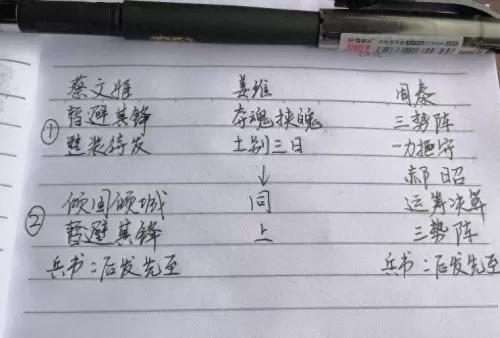 蔡文姬 姜维 周泰
① 暂避其锋 夺魂挟魄 三势阵
整装待发 士别三日 一力拒守
↓ 郝昭
② 倾国倾城 同 运筹决算
暂避其锋 上 三势阵
兵书:后发先至 兵书:后发先至